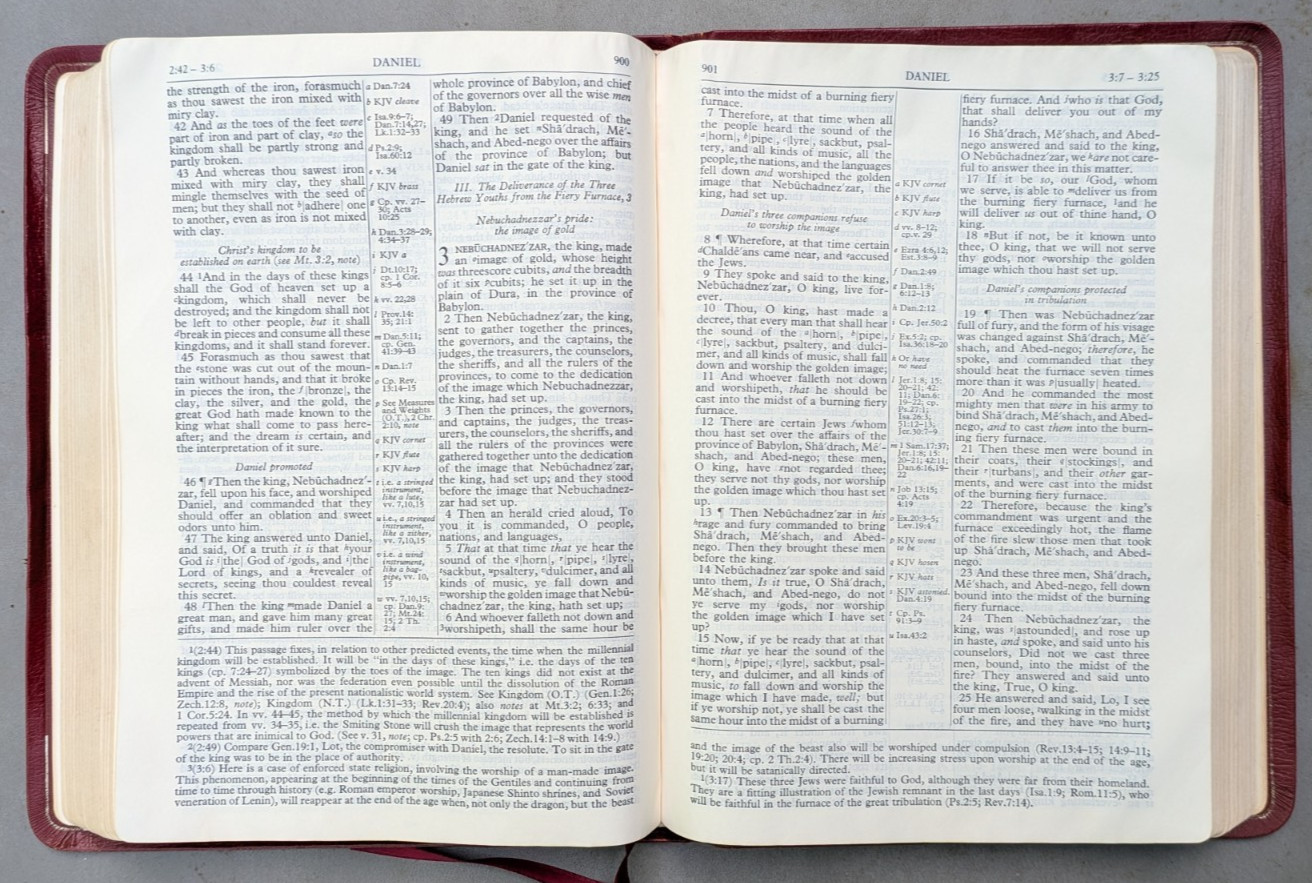 2:42 – 3:6
DANIEL
900
the strength of the iron, forasmuch
as thou sawest the iron mixed with
miry clay.
42 And as the toes of the feet were
part of iron and part of clay, cso the
kingdom shall be partly strong and
partly broken.
43 And whereas thou sawest iron
mixed with miry clay, they shall
mingle themselves with the seed of
men; but they shall not b|adhere| one
to another, even as iron is not mixed
with clay.
Christ's kingdom to be
established on earth (see Mt. 3:2, note)
44 1And in the days of these kings
shall the God of heaven set up a
ckingdom, which shall never be
destroyed; and the kingdom shall not
be left to other people, but it shall
dbreak in pieces and consume all these
kingdoms, and it shall stand forever.
45 Forasmuch as thou sawest that
the estone was cut out of the moun-
tain without hands, and that it broke
in pieces the iron, the f|bronze|, the
clay, the silver, and the gold, the
great God hath made known to the
king what shall come to pass here-
after; and the dream is certain, and
the interpretation of it sure.
Daniel promoted
46 ¶ gThen the king, Nebûchadnez´-
zar, fell upon his face, and worshiped
Daniel, and commanded that they
should offer an oblation and sweet
odors unto him.
47 The king answered unto Daniel,
and said, Of a truth it is that hyour
God is i|the| God of jgods, and i|the|
Lord of kings, and a krevealer of
secrets, seeing thou couldest reveal
this secret.
48 lThen the king mmade Daniel a
great man, and gave him many great
gifts, and made him ruler over the
a Dan.7:24
b KJV cleave
c Isa.9:6–7;
Dan.7:14,27;
Lk.1:32–33
d Ps.2:9;
Isa.60:12
e v. 34
f KJV brass
g Cp. vv. 27–
30; Acts
10:25
h Dan.3:28–29;
4:34–37
i KJV a
j Dt.10:17;
cp. 1 Cor.
8:5–6
k vv. 22,28
l Prov.14:
35; 21:1
m Dan.5:11;
cp. Gen.
41:39–43
n Dan.1:7
o Cp. Rev.
13:14–15
p See Measures
and Weights
(O.T.), 2 Chr.
2:10, note
q KJV cornet
r KJV flute
s KJV harp
t i.e. a stringed
instrument,
like a lute,
vv. 7,10,15
u i.e., a stringed
instrument,
like a zither,
vv. 7,10,15
v i.e. a wind
instrument,
like a bag-
pipe, vv. 10,
15
w vv. 7,10,15;
cp. Dan.9:
27; Mt.24:
15; 2 Th.
2:4
whole province of Babylon, and chief
of the governors over all the wise men
of Babylon.
49 Then 2Daniel requested of the
king, and he set nShā´drach, Mē´-
shach, and Abed-nego over the affairs
of the province of Babylon; but
Daniel sat in the gate of the king.
III. The Deliverance of the Three
Hebrew Youths from the Fiery Furnace, 3
Nebuchadnezzar's pride:
the image of gold
3 NEBŪCHADNEZ´ZAR, the king, made
an oimage of gold, whose height
was threescore cubits, and the breadth
of it six pcubits; he set it up in the
plain of Dura, in the province of
Babylon.
2 Then Nebûchadnez´zar, the king,
sent to gather together the princes,
the governors, and the captains, the
judges, the treasurers, the counselors,
the sheriffs, and all the rulers of the
provinces, to come to the dedication
of the image which Nebuchadnezzar,
the king, had set up.
3 Then the princes, the governors,
and captains, the judges, the treas-
urers, the counselors, the sheriffs, and
all the rulers of the provinces were
gathered together unto the dedication
of the image that Nebûchadnez´zar,
the king, had set up; and they stood
before the image that Nebuchadnez-
zar had set up.
4 Then an herald cried aloud, To
you it is commanded, O people,
nations, and languages,
5 That at that time that ye hear the
sound of the q|horn|, r|pipe|, s|lyre|,
tsackbut, upsaltery, vdulcimer, and all
kinds of music, ye fall down and
wworship the golden image that Nebû-
chadnez´zar, the king, hath set up;
6 And whoever falleth not down and
3worshipeth, shall the same hour be
1(2:44) This passage fixes, in relation to other predicted events, the time when the millennial
kingdom will be established. It will be “in the days of these kings,” i.e. the days of the ten
kings (cp. 7:24–27) symbolized by the toes of the image. The ten kings did not exist at the
advent of Messiah, nor was the federation even possible until the dissolution of the Roman
Empire and the rise of the present nationalistic world system. See Kingdom (O.T.) (Gen.1:26;
Zech.12:8, note); Kingdom (N.T.) (Lk.1:31–33; Rev.20:4); also notes at Mt.3:2; 6:33; and
1 Cor.5:24. In vv. 44–45, the method by which the millennial kingdom will be established is
repeated from vv. 34–35, i.e. the Smiting Stone will crush the image that represents the world
powers that are inimical to God. (See v. 31, note; cp. Ps.2:5 with 2:6; Zech.14:1–8 with 14:9.)
2(2:49) Compare Gen.19:1, Lot, the compromiser with Daniel, the resolute. To sit in the gate
of the king was to be in the place of authority.
3(3:6) Here is a case of enforced state religion, involving the worship of a man-made image.
This phenomenon, appearing at the beginning of the times of the Gentiles and continuing from
time to time through history (e.g. Roman emperor worship, Japanese Shinto shrines, and Soviet
veneration of Lenin), will reappear at the end of the age when, not only the dragon, but the beast
901
DANIEL
3:7 – 3:25
cast into the midst of a burning fiery
furnace.
7 Therefore, at that time when all
the people heard the sound of the
a|horn|, b|pipe|, c|lyre|, sackbut, psal-
tery, and all kinds of music, all the
people, the nations, and the languages
fell down and worshiped the golden
image that Nebûchadnez´zar, the
king, had set up.
Daniel's three companions refuse
to worship the image
8 ¶ Wherefore, at that time certain
dChaldē´ans came near, and eaccused
the Jews.
9 They spoke and said to the king,
Nebûchadnez´zar, O king, live for-
ever.
10 Thou, O king, hast made a
decree, that every man that shall hear
the sound of the a|horn|, b|pipe|,
c|lyre|, sackbut, psaltery, and dulci-
mer, and all kinds of music, shall fall
down and worship the golden image;
11 And whoever falleth not down
and worshipeth, that he should be
cast into the midst of a burning fiery
furnace.
12 There are certain Jews fwhom
thou hast set over the affairs of the
province of Babylon, Shā´drach, Mē´-
shach, and Abed-nego; these men,
O king, have gnot regarded thee;
they serve not thy gods, nor worship
the golden image which thou hast set
up.
13 ¶ Then Nebûchadnez´zar in his
hrage and fury commanded to bring
Shā´drach, Mē´shach, and Abed-
nego. Then they brought these men
before the king.
14 Nebûchadnez´zar spoke and said
unto them, Is it true, O Shā´drach,
Mē´shach, and Abed-nego, do not
ye serve my igods, nor worship
the golden image which I have set
up?
15 Now, if ye be ready that at that
time that ye hear the sound of the
a|horn|, b|pipe|, c|lyre|, sackbut, psal-
tery, and dulcimer, and all kinds of
music, to fall down and worship the
image which I have made, well; but
if ye worship not, ye shall be cast the
same hour into the midst of a burning
a KJV cornet
b KJV flute
c KJV harp
d vv. 8–12;
cp.v. 29
e Ezra 4:6,12;
Est.3:8–9
f Dan.2:49
g Dan.1:8;
6:12–13
h Dan.2:12
i Cp. Jer.50:2
j Ex.5:2; cp.
Isa.36:18–20
k Or have
no need
l Jer.1:8, 15;
20–21; 42:
11; Dan.6:
19–22; cp.
Ps.27:1;
Isa.26:3,
51:12–13;
Jer.30:7–9
m 1 Sam.17:37;
Jer.1:8; 15:
20–21; 42:11;
Dan.6:16,19–
22
n Job 13:15;
cp. Acts
4:19
o Ex.20:3–5;
Lev.19:4
p KJV wont
to be
q KJV hosen
r KJV hats
s KJV astonied.
Dan.4:19
t Cp. Ps.
91:3–9
u Isa.43:2
fiery furnace. And jwho is that God,
that shall deliver you out of my
hands?
16 Shā´drach, Mē´shach, and Abed-
nego answered and said to the king,
O Nebûchadnez´zar, we kare not care-
ful to answer thee in this matter.
17 If it be so, our lGod, whom
we serve, is able to mdeliver us from
the burning fiery furnace, 1and he
will deliver us out of thine hand, O
king.
18 nBut if not, be it known unto
thee, O king, that we will not serve
thy gods, nor oworship the golden
image which thou hast set up.
Daniel's companions protected
in tribulation
19 ¶ Then was Nebûchadnez´zar
full of fury, and the form of his visage
was changed against Shā´drach, Mē´-
shach, and Abed-nego; therefore, he
spoke, and commanded that they
should heat the furnace seven times
more than it was p|usually| heated.
20 And he commanded the most
mighty men that were in his army to
bind Shā´drach, Mē´shach, and Abed-
nego, and to cast them into the burn-
ing fiery furnace.
21 Then these men were bound in
their coats, their q|stockings|, and
their r|turbans|, and their other gar-
ments, and were cast into the midst
of the burning fiery furnace.
22 Therefore, because the king's
commandment was urgent and the
furnace exceedingly hot, the flame
of the fire slew those men that took
up Shā´drach, Mē´shach, and Abed-
nego.
23 And these three men, Shā´drach,
Mē´shach, and Abed-nego, fell down
bound into the midst of the burning
fiery furnace.
24 Then Nebûchadnez´zar, the
king, was s|astounded|, and rose up
in haste, and spoke, and said unto his
counselors, Did not we cast three
men, bound, into the midst of the
fire? They answered and said unto
the king, True, O king.
25 He answered and said, Lo, I see
four men loose, twalking in the midst
of the fire, and they have uno hurt;
and the image of the beast also will be worshiped under compulsion (Rev.13:4–15; 14:9–11;
19:20; 20:4; cp. 2 Th.2:4). There will be increasing stress upon worship at the end of the age,
but it will be satanically directed.
1(3:17) These three Jews were faithful to God, although they were far from their homeland.
They are a fitting illustration of the Jewish remnant in the last days (Isa.1:9; Rom.11:5), who
will be faithful in the furnace of the great tribulation (Ps.2:5; Rev.7:14).